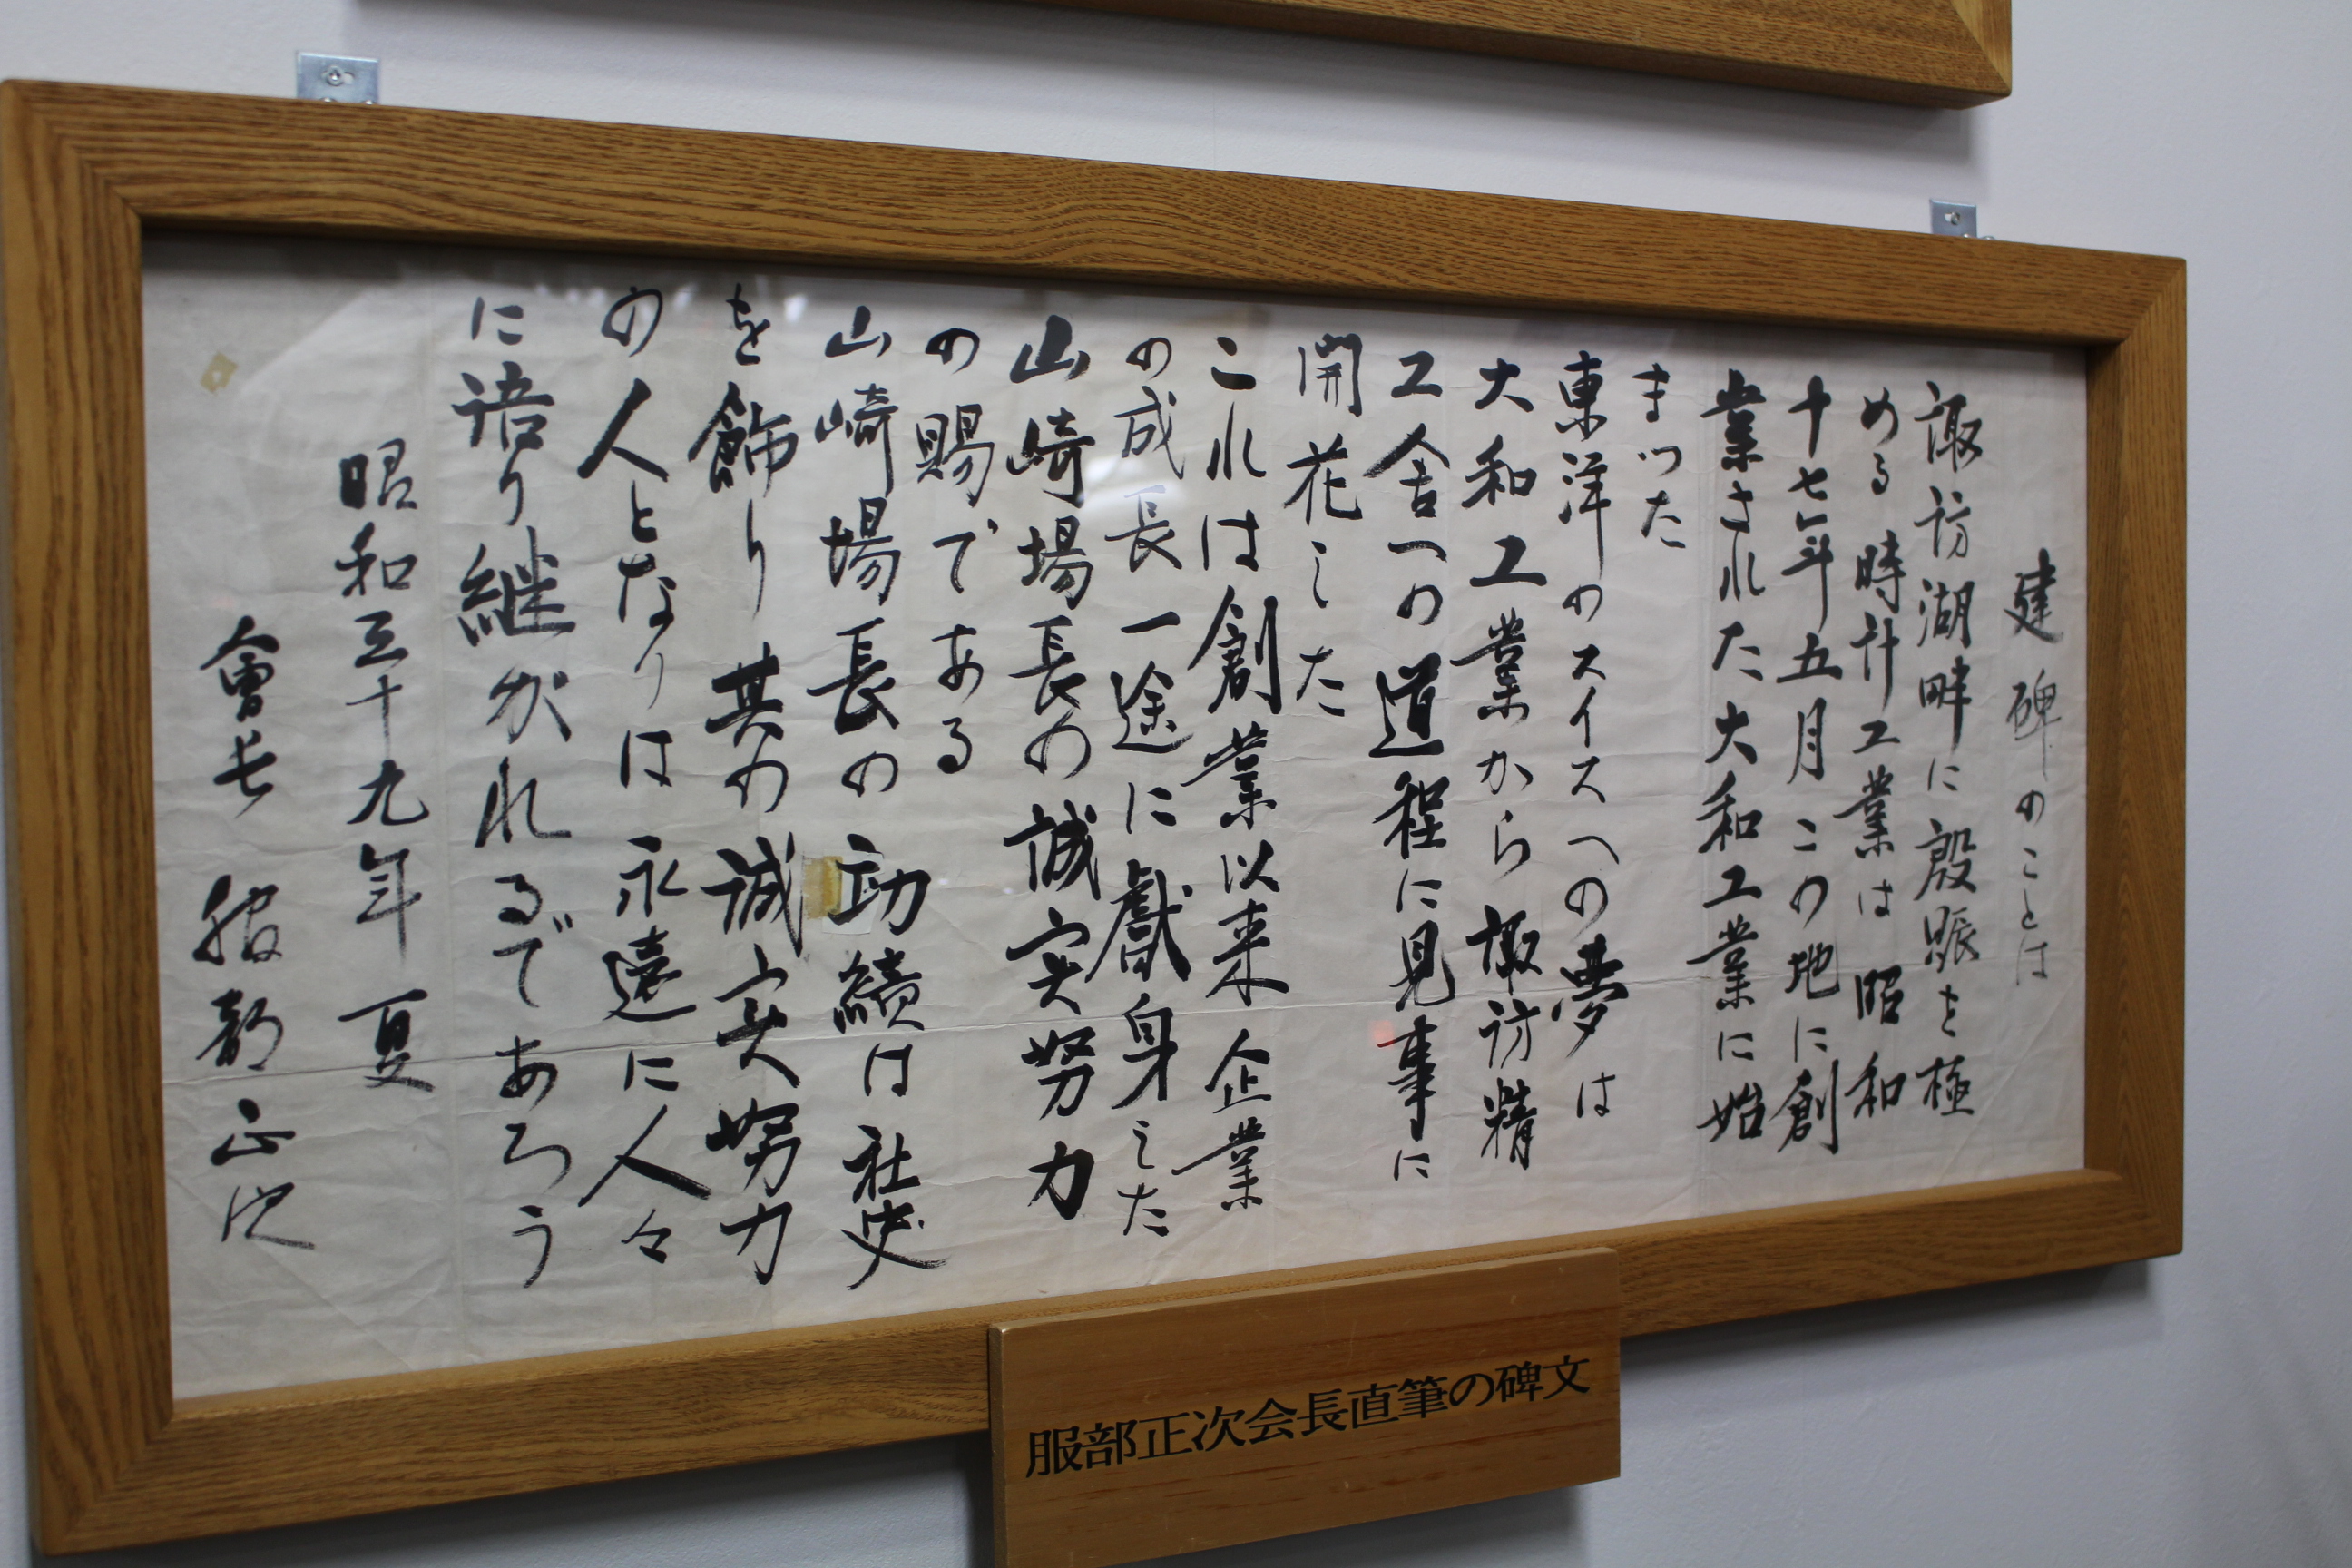 建碑のことは
諏訪湖畔に殷賑を極
める時計工業は昭和
十七年五月この地に創
業された大和工業に始
まった
東洋のスイスへの夢は
大和工業から諏訪精
工舎への道程に見事に
開花した
これは創業以来企業
の成長一途に献身した
山崎場長の誠実努力
の賜である
山崎場長の功績は社史
を飾り其の誠実努力
の人となりは永遠に人々
に語り継がれるであろう
昭和三十九年夏
會長 服部正次
服部正次会長直筆の碑文